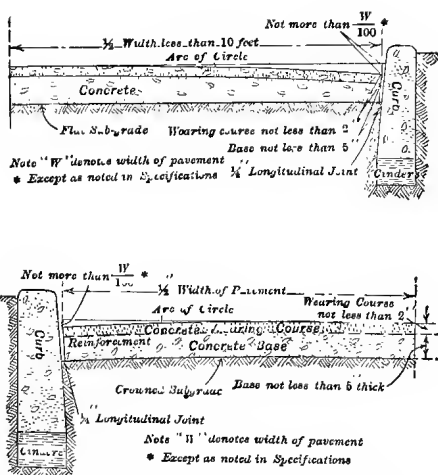 Not more than W/100 *
½ Width less than 10 feet
Arc of Circle
Concrete
Curb
Flat Subgrade
Wearing course not less than 2"
Base not less than 5"
Note "W" denotes width of pavement
* Except as noted in Specifications
¼" Longitudinal Joint
Cinders
Not more than W/100 *
½ Width of Pavement
Wearing Course
not less than 2"
Arc of Circle
Curb
Concrete Wearing Course
Reinforcement
Concrete Base
Crowned Subgrade
Base not less than 5" thick
¼" Longitudinal Joint
Cinders
Note "W" denotes width of pavement
* Except as noted in Specifications